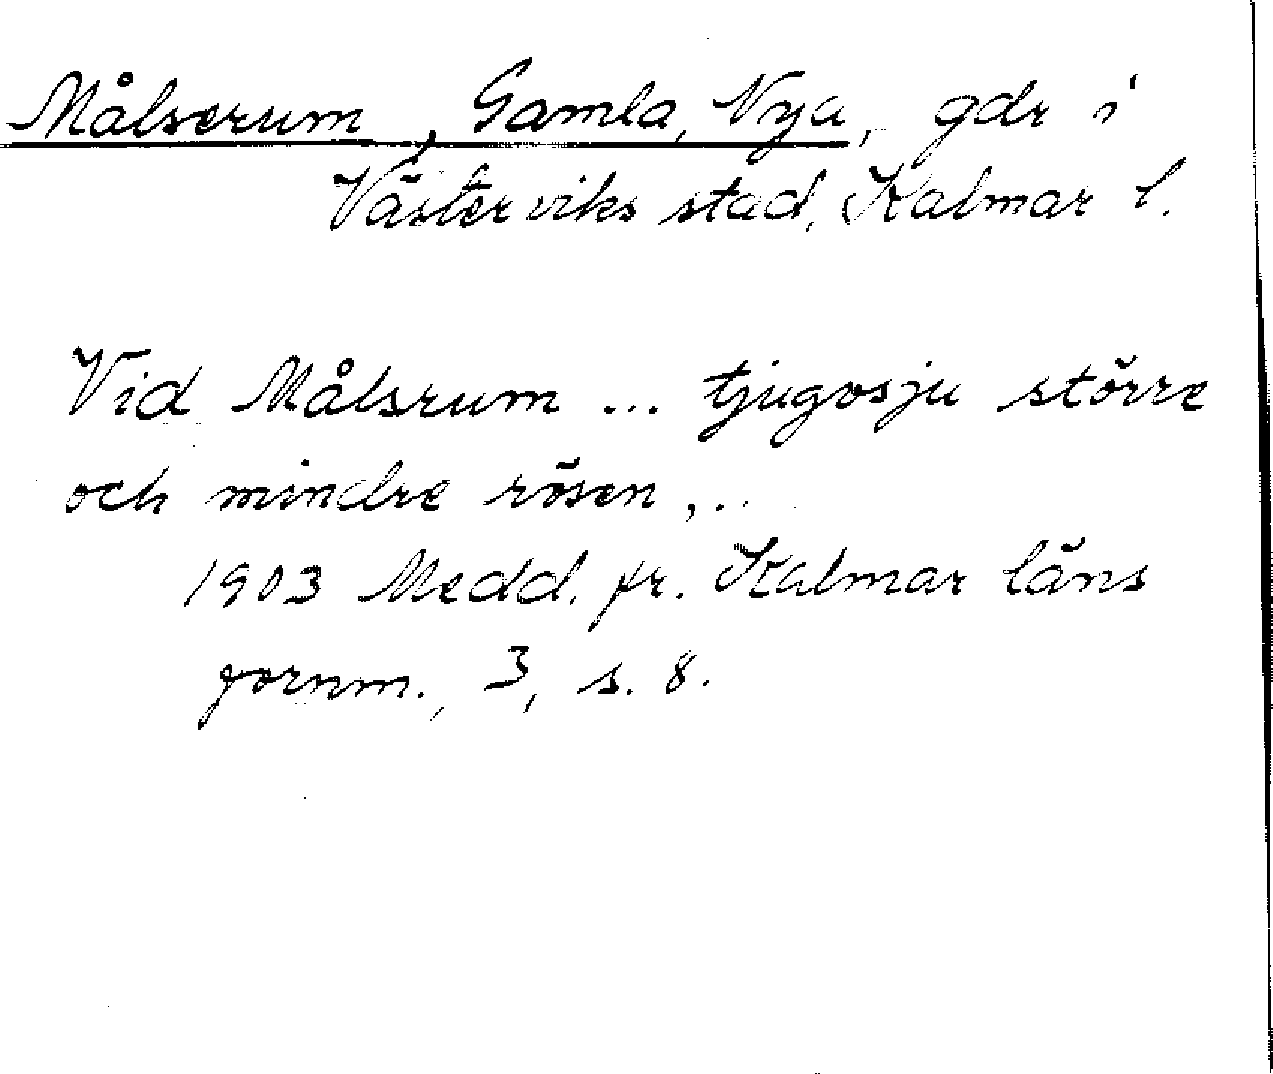 Målserum, Gamla, Nya, gdr i
Västerviks stad, Kalmar l.
Vid Målsrum ... tjugosju större
och mindre rösen, ..
1903 Medd. fr. Kalmar läns
fornm., 3, s. 8.